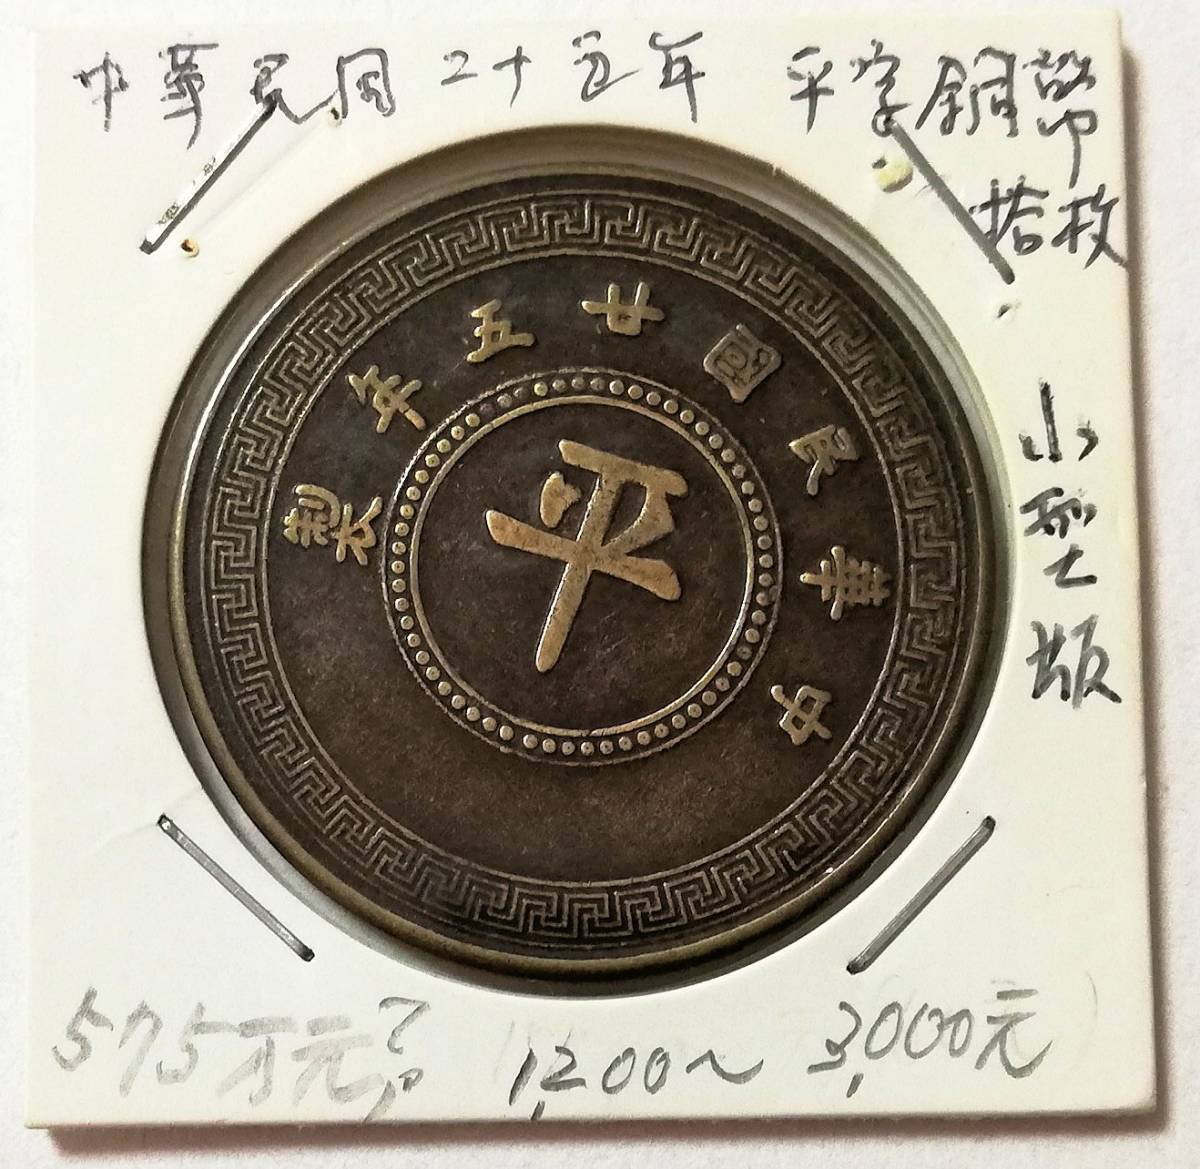 中華民国二十五年 平字銅幣
拾枚
小型版
中華民國廿五年製
平
575万元??
1,200~ 3,000元